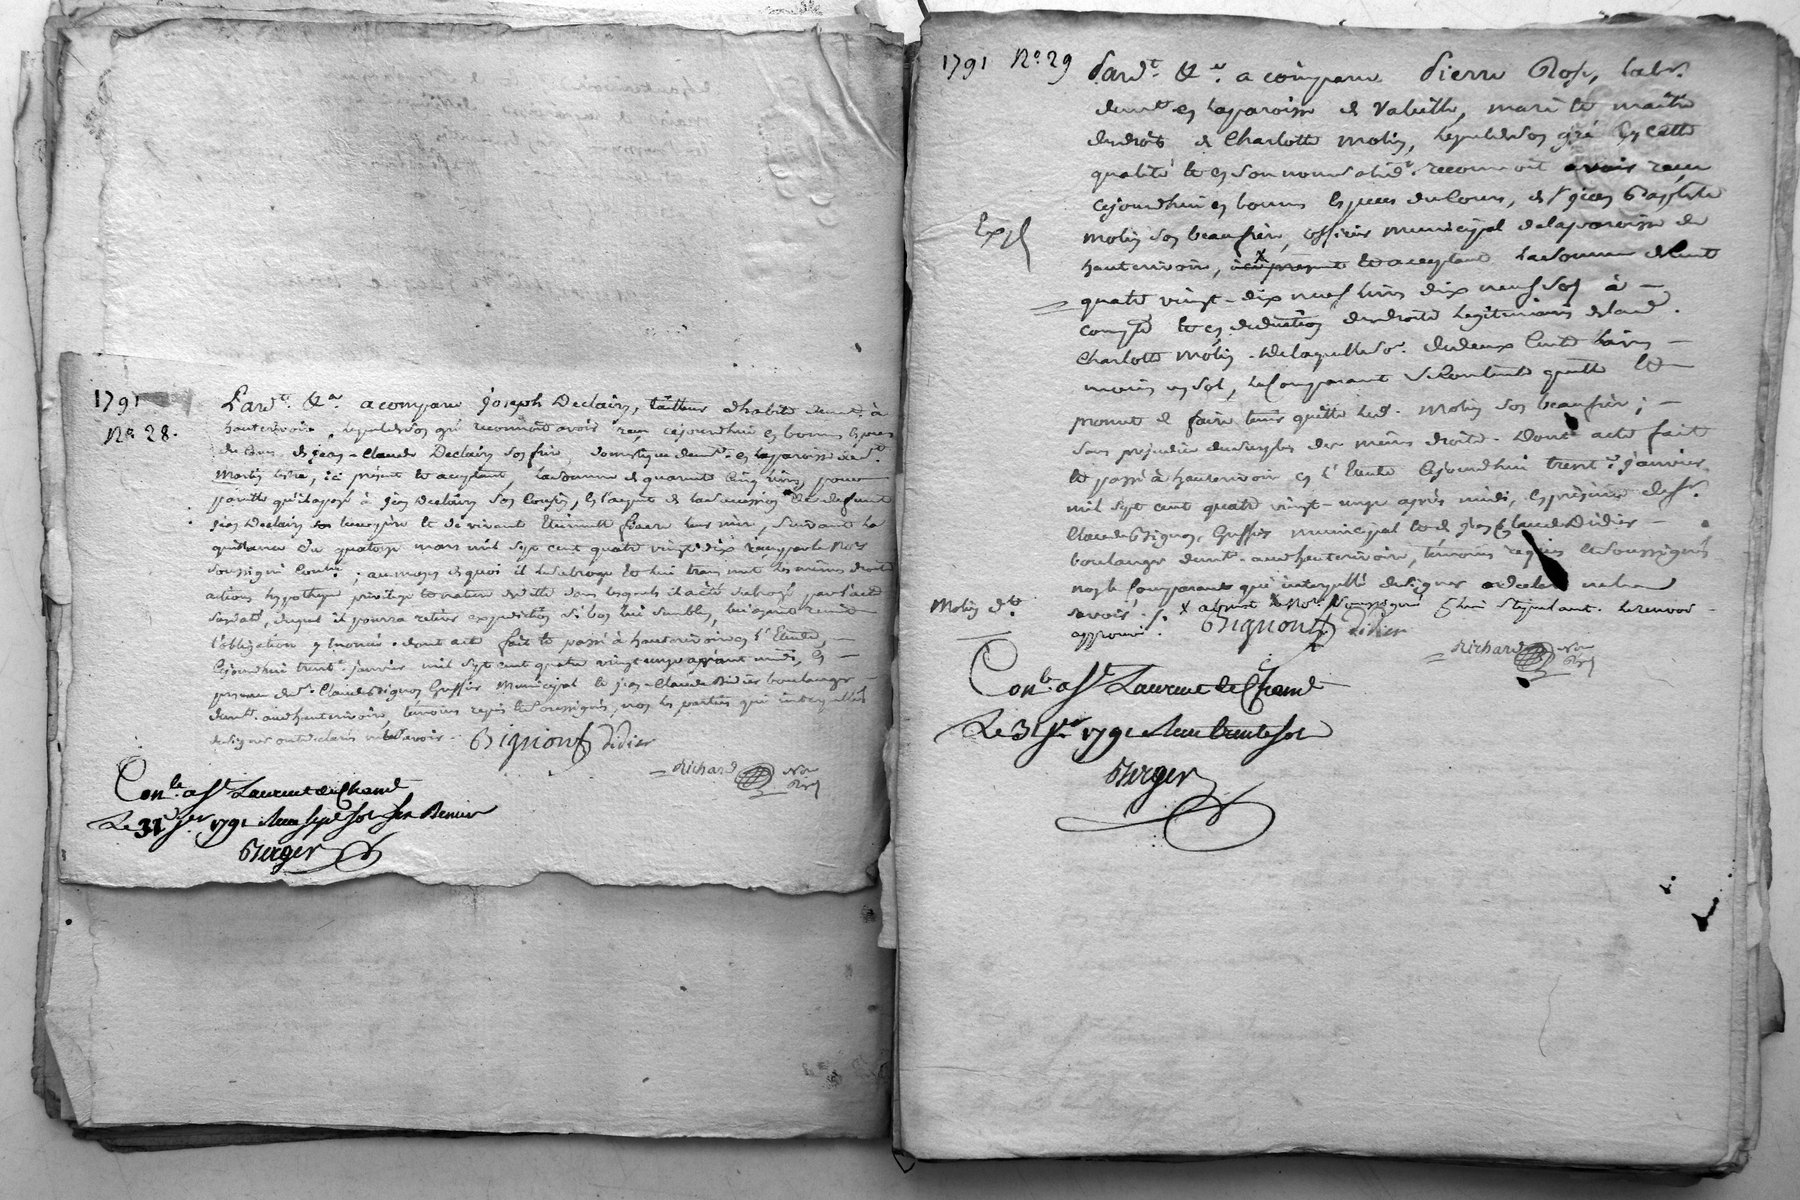 1791
N.° 28.
Pard.t &.a a comparu Joseph Declairy, tailleur d'habits demt. à
hauterivoire, lequel de son gré reconnoit avoir reçu cejourdhui en bonnes espèces
du cours, de jean-Claude Declairy son frère, domestique demt. en la paroisse de st.
Martin lestra, ici présent et acceptant, la somme de quarante cinq livres, pour
pareille qu'il a payé à jean Declairy son cousin, en l'acquit de la succession de defunt
jean Declairy son
et de vivant Etiennette leur mère, suivant la
quittance du quatorze mars mil sept cent quatre vingt dix reçue par le No.re
soussigné Contr.lée; au moyen de quoi il le subroge et lui transmet les mêmes droits
actions hypotheque privilege et
dans lesquels il a été subrogé par l'acte
susdaté, duquel il pourra retirer expedition si bon lui semble, lui ayant remis
l'obligation y énoncée. dont acte fait et passé à hauterivoire en l'Etude, —
Cejourdhui trent.e janvier mil sept cent quatre vingt onze avant midi, en —
presence de s.r Claude Bignon Greffier Municipal et jean-Claude Didier boulanger —
demt. audit hauterivoire, temoins requis et soussignés, non les parties qui interpellées
de signer ont déclaré ne le savoir.
Bignon Didier
Richard No.re
Con.lé a St Laurent de Chamt
Le 31 Jer 1791 Reçu sept sol six Denier
Berger
1791 N.° 29
Pard.t &.a a comparu Pierre Rose, labr.
demt. en la paroisse de Valeille, mari et maître
des droits de Charlotte Molin, lequel de son gré en cette
qualité et en son nom
reconnoit avoir reçu
cejourdhui en bonnes espèces du cours, de s.r jean Baptiste
Molin son beaufrère, officier municipal de la paroisse de
hauterivoire, ici present et acceptant la somme de cent
quatre vingt-dix neuf livres dix neuf sols à —
compte et en deduction des droits légitimaires de lad.
Charlotte Molin. De laquelle so.e de deux cents livres —
moins un sol, le Comparant se contente quitte et —
promet de faire tenir quitte led. Molin son beaufrère; —
sans prejudice du surplus des mêmes droits. Dont acte fait
et passé à hauterivoire en l'Etude Cejourdhui trent.e janvier
mil sept cent quatre vingt-onze après midi, en présence de s.r
Claude Bignon, Greffier municipal et de jean Claude Didier —
boulanger demt. audit hauterivoire, temoins requis et soussignés
non le Comparant qui interpellé de signer a déclaré ne le
savoir /. x absent le No.re soussigné pour lui stipulant. le renvoi
approuvé.
Expé
Molin d.t
Bignon Didier
Richard No.re
Con.lé a St Laurent de Chamt
Le 31 Jer 1791 Reçu trente sol
Berger